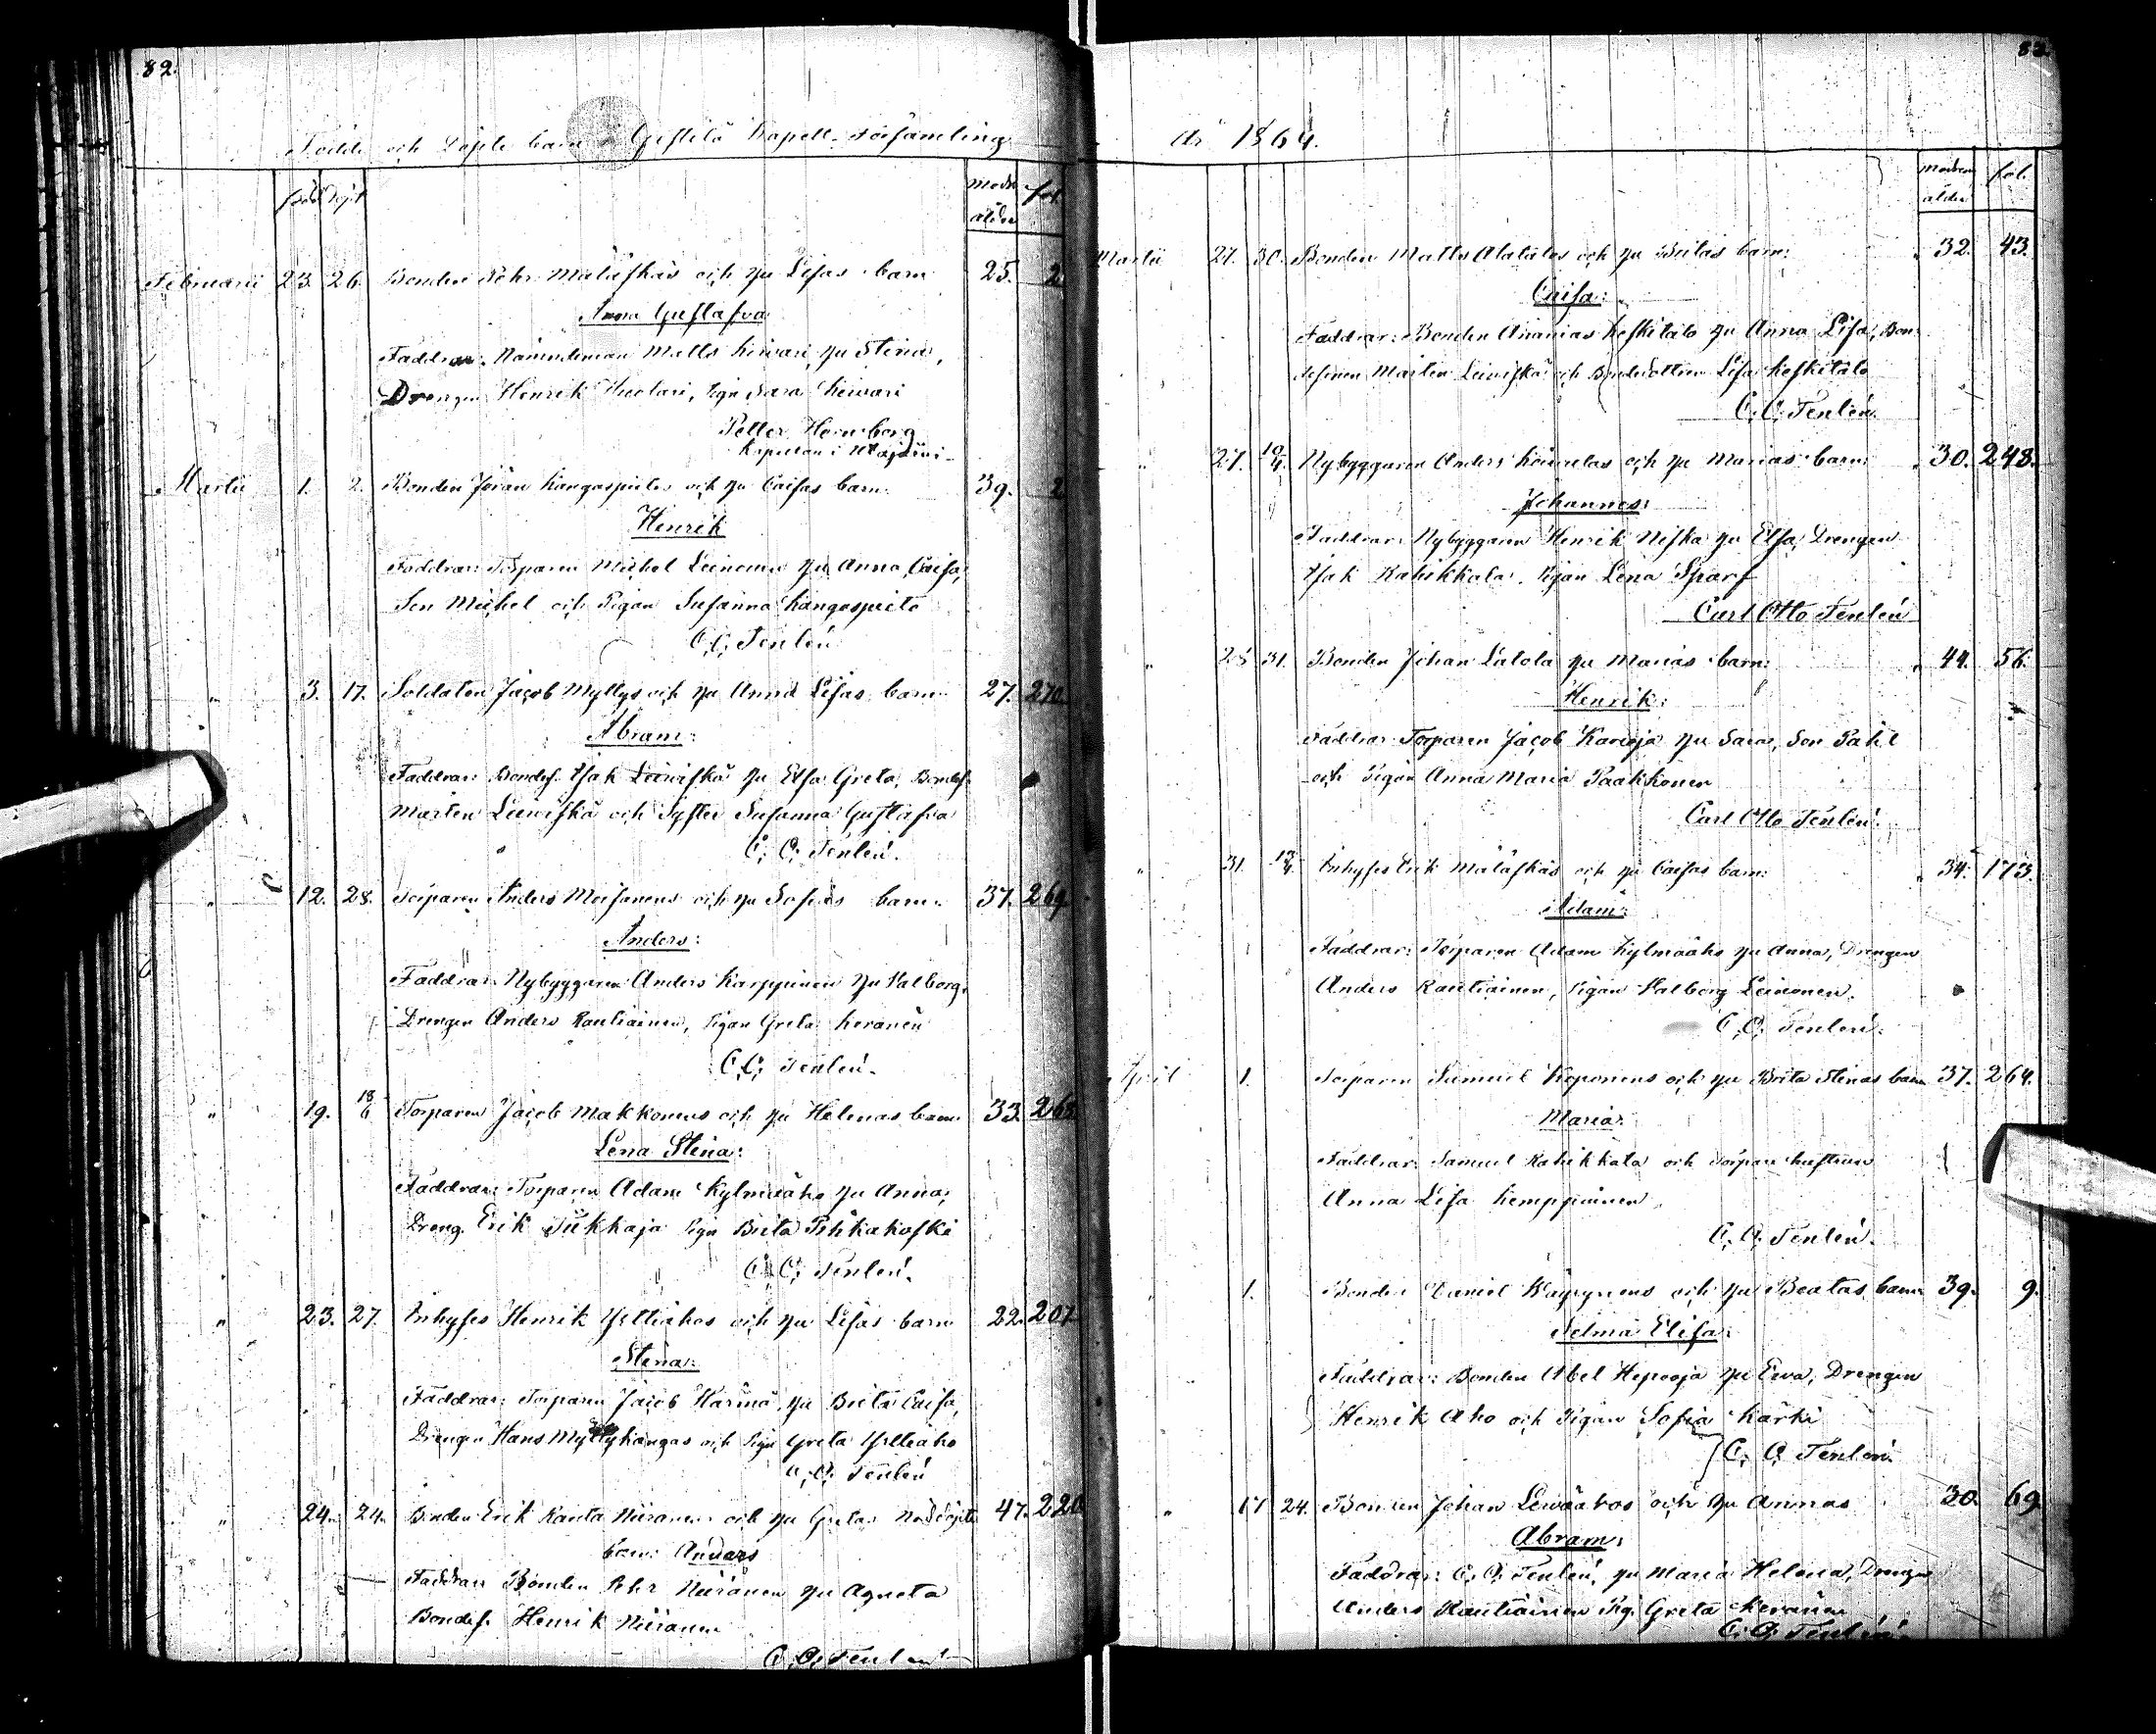 82.
Födde och Döpte barn i Gestilä Kapell-församling
född döpt
modr ålder
fol.
Februarii 23. 26. Bonden Pehr Mäläskäs och hu Lisas barn 25. 2
Anna Gustafva
Faddrar: Nämndeman Matts Keväri, hu Stina,
Drengen Henrik Huotari, pign Sara
Petter Hornborg
Kapellan i
Martii 1. 2. Bonden Jöran Kangaspietis och hu Caisas barn: 39. 2
Henrik
Faddrar: Torparen Michel Leinonen hu Anna Caisa,
Son Michel och Pigan Susanna Kangaspieto
C. O. Tenlén
" 3. 17. Soldaten Jacob Myllys och hu Anna Lisas barn 27. 270.
Abram:
Faddrar: Bondes. Isak Leiviskä hu Elsa Greta, Bondes.
Mårten Leiviskä och Syster Susanna Gustafva
C. O. Tenlén.
" 12. 28. Torparen Anders Moisanens och hu Sofias barn: 37. 269
Anders:
Faddrar: Nybyggaren Anders Karppinen hu Valborg,
Drengen Anders Rautiainen, Pigan Greta Keränen
C. O. Tenlén.
" 19. 18/6 Torparen Jacob Makkonens och hu Helenas barn: 33. 268
Lena Stina:
Faddrar: Torparen Adam Kylmäaho hu Anna,
Dreng. Erik Tükkaja Pign Brita Pihkakoski
C. O. Tenlén.
" 23. 27. Inhyses Henrik Ylliahos och hu Lisas barn 22. 207
Stina:
Faddrar: Torparen Jacob Härmä, hu Brita Caisa,
Drengen Hans Myllykangas och Pign Greta Ylliaho
C. O. Tenlén
" 24. 24. Bonden Erik Ranta Niiranens och hu Gretas Nöddöpte 47. 220
barn: Anders
Faddrar Bonden Pehr Niiranen hu Agneta
Bondes. Henrik Niiranen
C. O. Tenlén
83.
År 1864.
modrens ålder
fol.
Martii 27. 30. Bonden Matts Alatalos och hu Britas barn: 32. 43.
Caisa:
Faddrar: Bonden Ananias Keskitalo hu Anna Lisa, Bon-
desonen Mårten Leiviskä och Bondedottren Lisa Keskitalo
C. O. Tenlén.
" 27. 10/4. Nybyggaren Anders och hu Marias barn: 30. 248.
Johannes:
Faddrar: Nybyggaren Henrik Niska hu Elsa, Drengen
Isak Rahikkala, Pigan Lena Sparf
Carl Otto Tenlén
" 28 31. Bonden Johan Latola hu Marias barn: 44. 56.
Henrik:
Faddrar Torparen Jacob Karioja hu Sara, Son Pahl
och Pigan Anna Maria Paakkonen
Carl Otto Tenlén.
" 31. 13/4. Inhyses Erik Mäläskäs och hu Caisas barn: 34. 173.
Adam:
Faddrar: Torparen Adam Kylmäaho hu Anna, Drengen
Anders Rautiainen, Pigan Valborg Leinonen.
C. O. Tenlén.
April 1. Torparen Samuel Koponens och hu Brita Stinas barn 37. 264.
Maria:
Faddrar: Samuel Rahikkala och torpare hustrun
Anna Lisa Kemppainen.
C. O. Tenlén.
" 1. Bonden Daniel Käyrynens och hu Beatas barn 39. 9.
Selma Elisa:
Faddrar: Bonden Abel Hepooja hu Ewa, Drengen
Henrik Aho och Pigan Sofia Kärki
C. O. Tenlén.
" 17 24. Bonden Johan Leväahos och hu Annas 30. 69.
Abram:
Faddrar: C. O. Tenlén, hu Maria Helena, Drengen
Anders Rautiainen Pig. Greta Keränen
C. O. Tenlén.